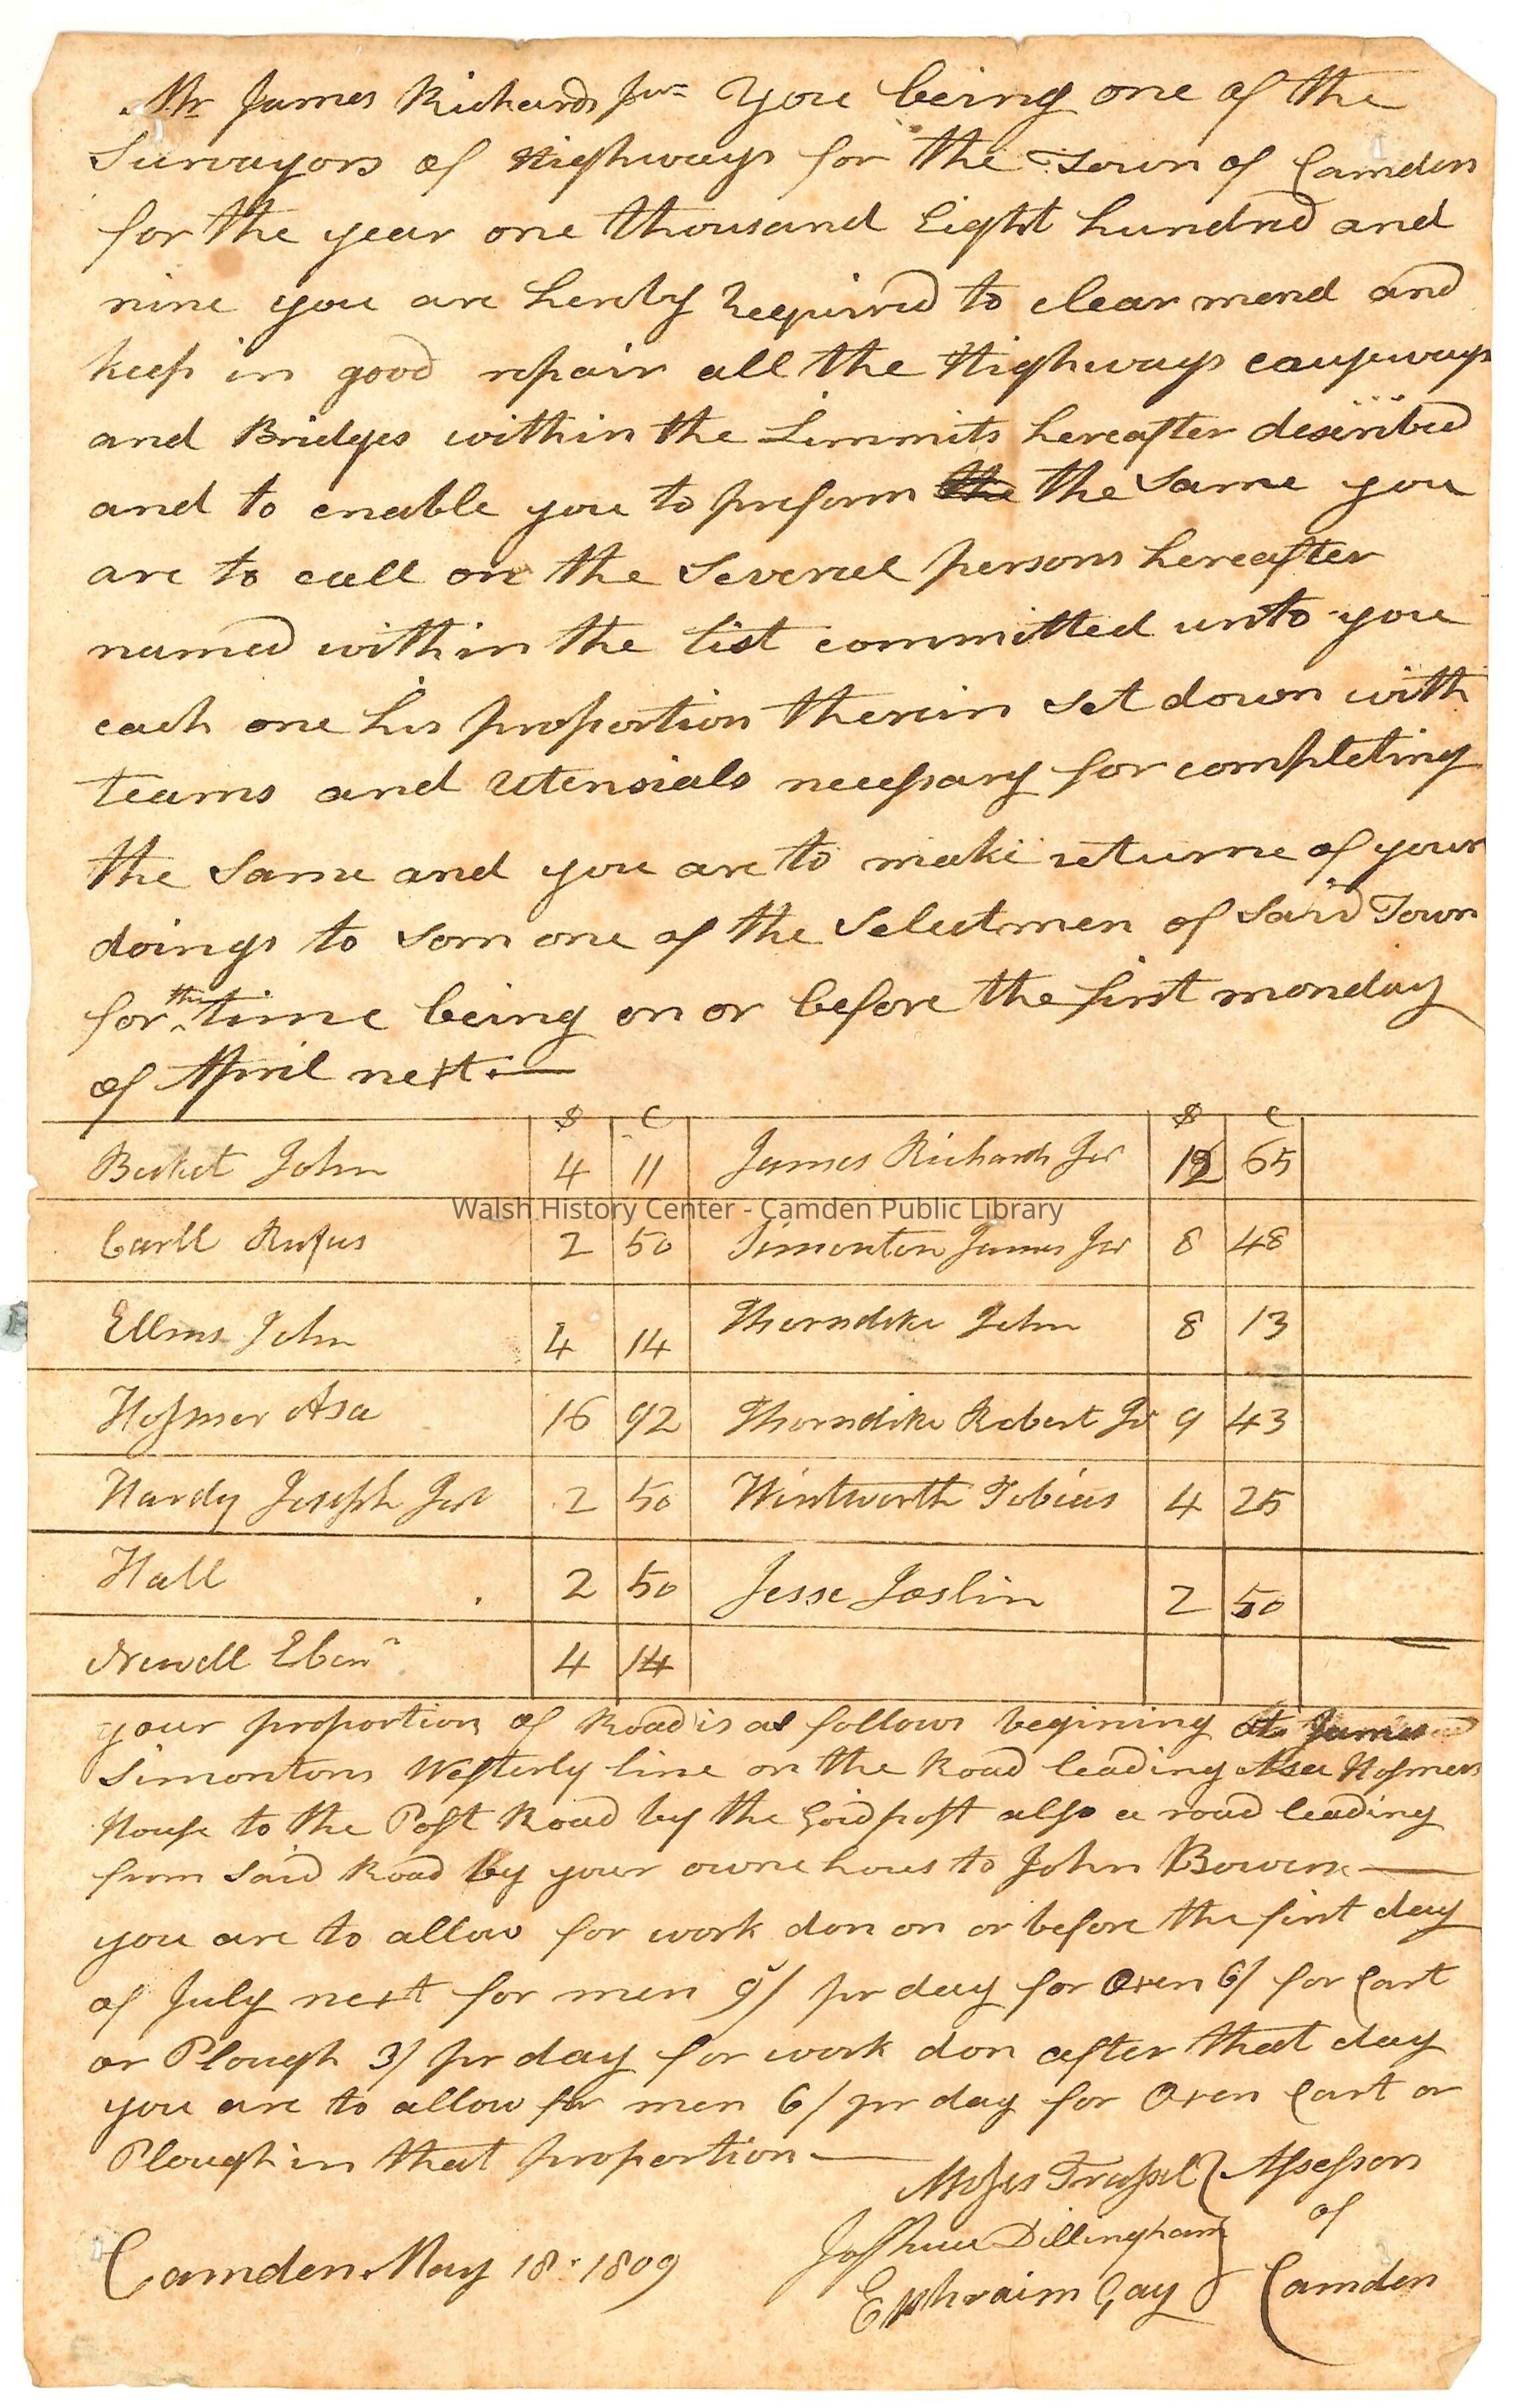 Mr James Richards Junr You being one of the
Survayors of Highways for the Town of Camden
for the year one thousand Eight hundred and
nine you are herby Required to clear mend and
keep in good repair all the Highways causeways
and Bridges within the Limmits hereafter described
and to enable you to preform the the Same you
are to call on the Several persons hereafter
named within the list committed unto you
each one his proportion therein Set down with
teams and Utensials necessary for completing
the Same and you are to make returne of your
doings to Som one of the Selectmen of Said Town
for the time being on or before the first monday
of April next.—
$ C $ C
John 4 11 James Richards Jur 12 65
Walsh History Center - Camden Public Library
Carll Rufus 2 50 Simonton James Jur 8 48
Ellms John 4 14 Thorndike John 8 13
Hosmer Asa 16 92 Thorndike Robert Jr 9 43
Hardy Joseph Jur 2 50 Wintworth Tobias 4 25
Hall 2 50 Jesse Joslin 2 50
Newell Ebenr 4 14
your proportion of Road is as follows begining at James
Simontons Westerly line on the Road leading Asa Hosmers
House to the Post Road by the Goid post also a road leading
from Said Road by your owne hous to John Bowers —
you are to allow for work don on or before the first day
of July next for men 9/ pr day for Oxen 6/ for Cart
or Plough 3/ pr day for work don after that day
you are to allow for men 6/ pr day for Oxen Cart or
Plough in that proportion —
Moses Trussel Assessors
Joshua Dillingham of
Camden May 18: 1809 Ephraim Gay Camden